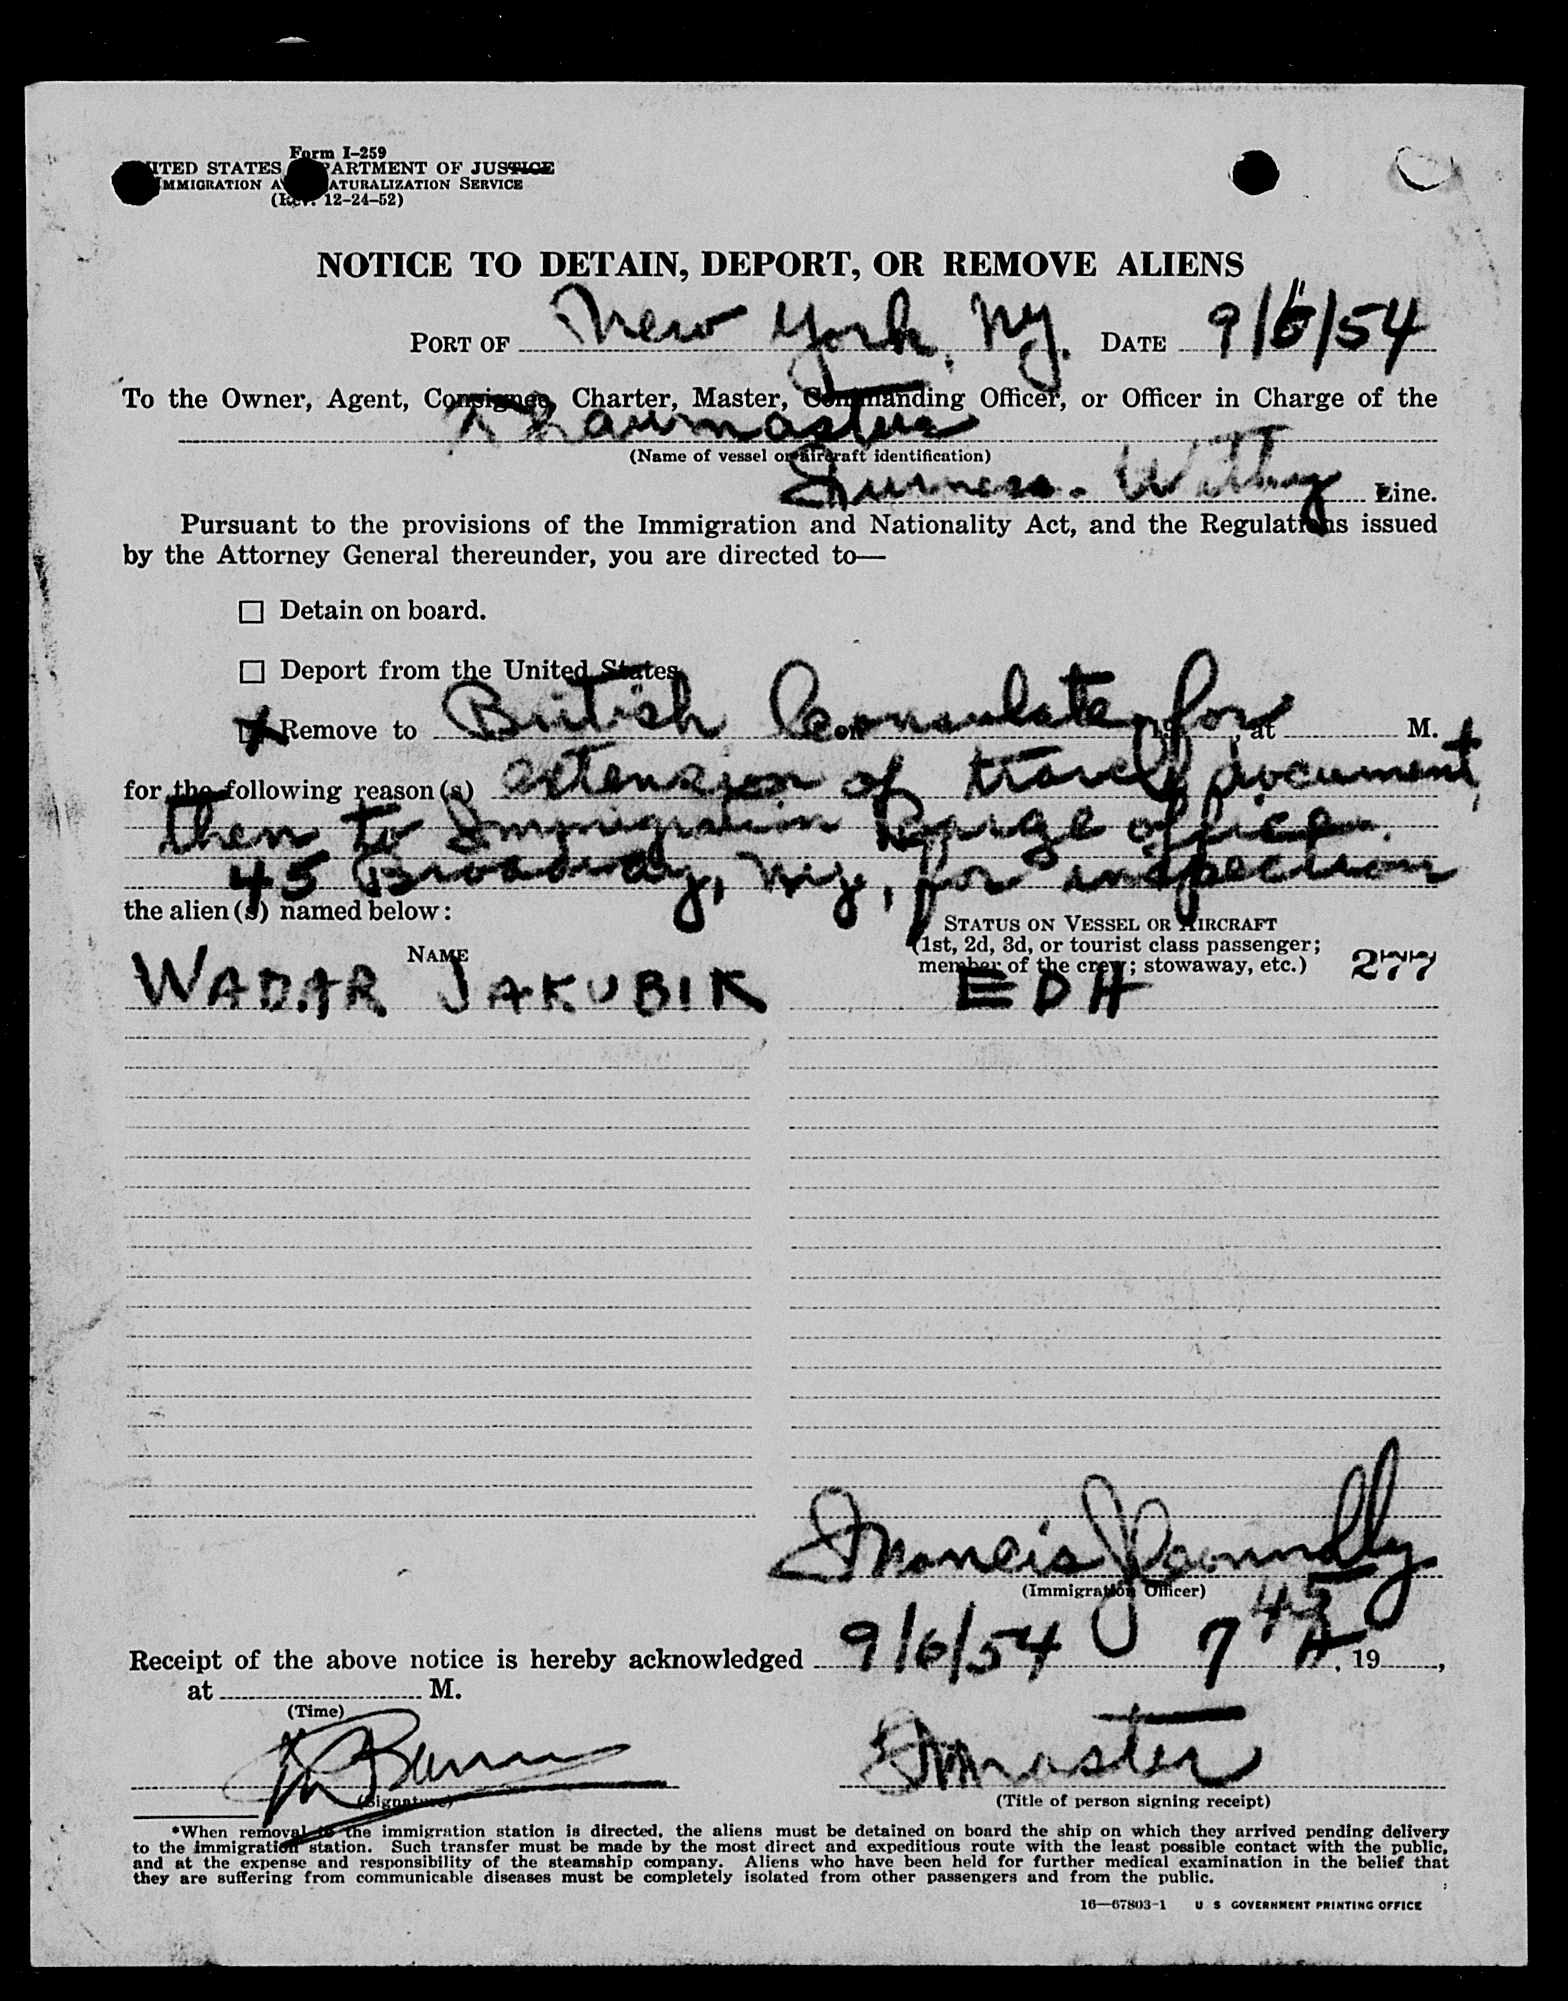 Form I-259
UNITED STATES DEPARTMENT OF JUSTICE
IMMIGRATION AND NATURALIZATION SERVICE
(Rev. 12-24-52)
NOTICE TO DETAIN, DEPORT, OR REMOVE ALIENS
PORT OF New York, NY. DATE 9/6/54
To the Owner, Agent, Consignee, Charter, Master, Commanding Officer, or Officer in Charge of the
(Name of vessel or aircraft identification)
Furness-Withy Line.
Pursuant to the provisions of the Immigration and Nationality Act, and the Regulations issued
by the Attorney General thereunder, you are directed to—
☐ Detain on board.
☐ Deport from the United States
☒ Remove to British Consulate for on 19 , at M.
for the following reason(s) extension of travel document, +
then to Immigration Barge office
45 Broadway, N.Y., for inspection
the alien(s) named below:
STATUS ON VESSEL OR AIRCRAFT
NAME (1st, 2d, 3d, or tourist class passenger;
member of the crew; stowaway, etc.) 277
WADAR JAKUBIK EDH
Francis J Connolly
(Immigration Officer)
Receipt of the above notice is hereby acknowledged 9/6/54 7 45 A, 19 ,
at M.
(Time)
Master
(Signature) (Title of person signing receipt)
*When removal to the immigration station is directed, the aliens must be detained on board the ship on which they arrived pending delivery
to the immigration station. Such transfer must be made by the most direct and expeditious route with the least possible contact with the public,
and at the expense and responsibility of the steamship company. Aliens who have been held for further medical examination in the belief that
they are suffering from communicable diseases must be completely isolated from other passengers and from the public.
16—67803-1 U S GOVERNMENT PRINTING OFFICE